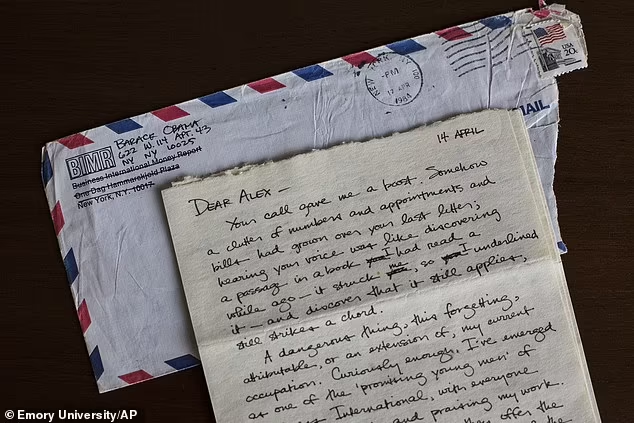 BIMR
BARACK OBAMA
622 W. 114 APT. 43
NY NY 10025
Business International Money Report
One Dag Hammarskjold Plaza
New York, N.Y. 10017
NEW YORK, NY 100
PM
17 APR
1984
USA
20c
MAIL
14 APRIL
DEAR ALEX –
Your call gave me a boost. Somehow
a clutter of numbers and appointments and
bills had grown over your last letter;
hearing your voice was like discovering
a passage in a book I had read a
while ago – it struck me, so I underlined
it – and discover that it still applies,
still strikes a chord.
A dangerous thing, this forgetting,
attributable, or an extension of, my current
occupation. Curiously enough, I've emerged
as one of the "promising young men" of
International, with everyone
and praising my work.
they offer the
the
© Emory University/AP